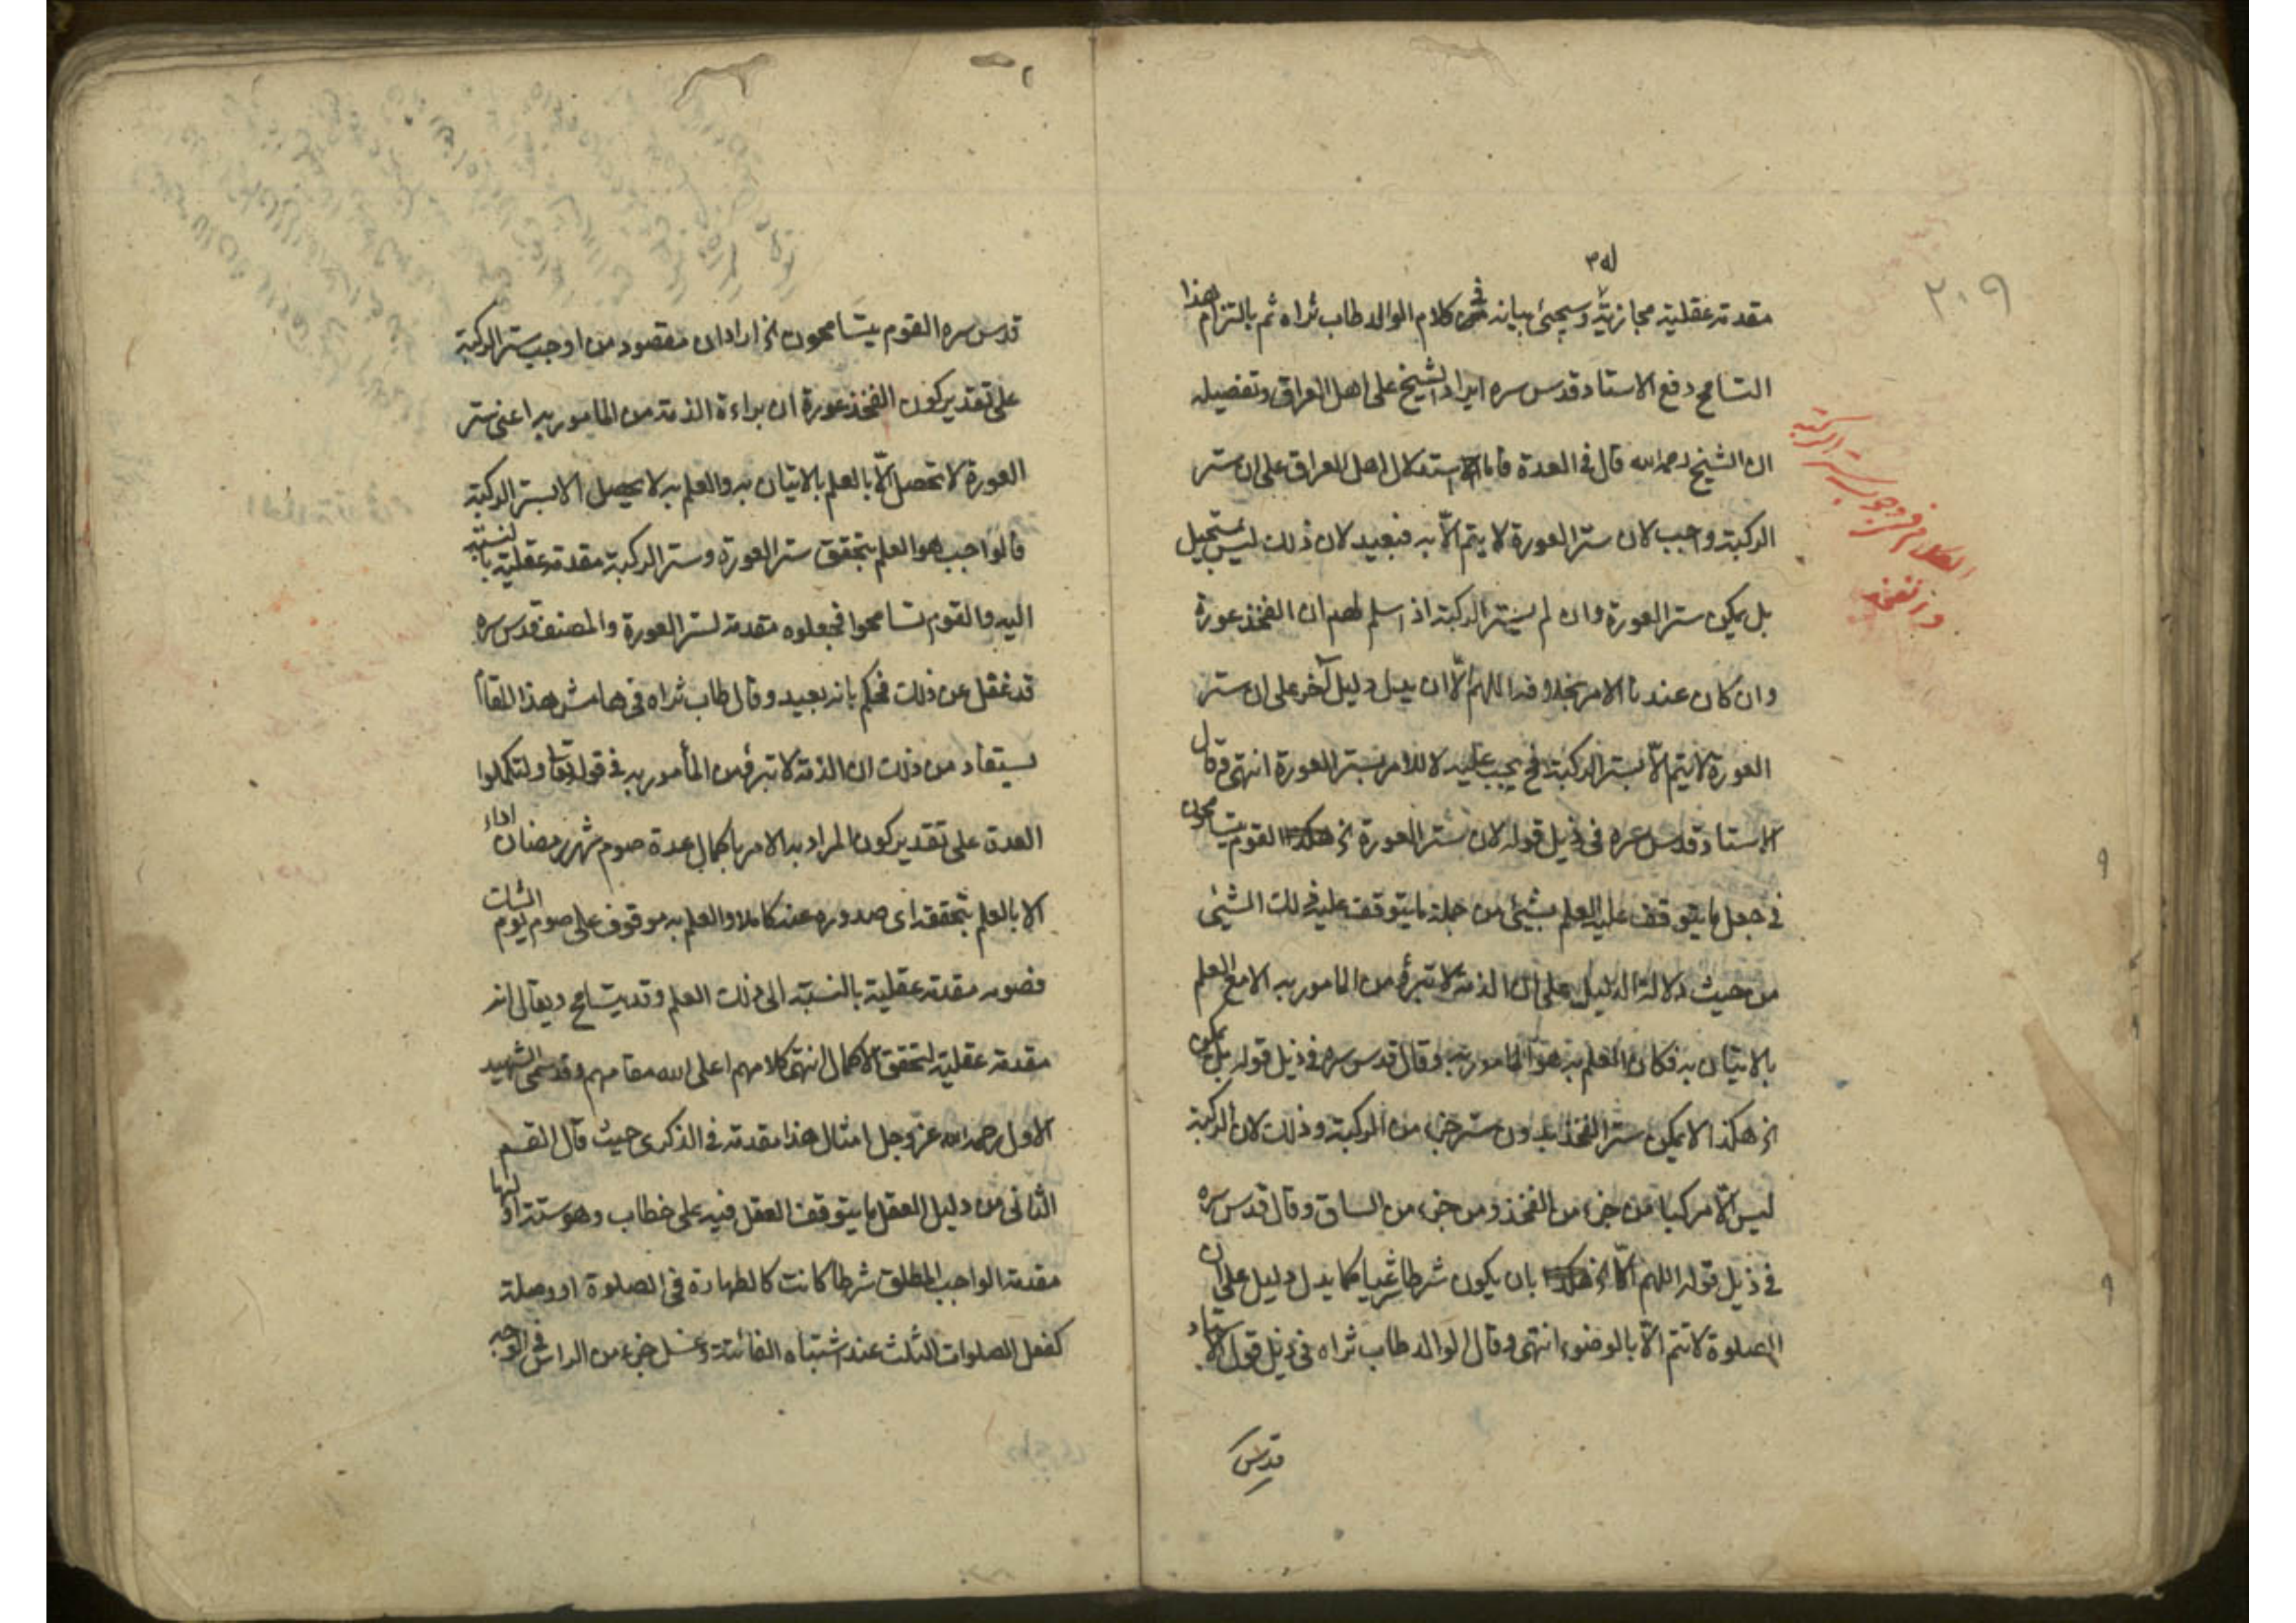 ٢٠٩
مقدمة عقلية مجازية وسيجئ بيانه في كلام الوالد طاب ثراه ثم بالتزام هذا
التسامح دفع الاستاد قدس سره ايراد الشيخ على اهل العراق وتفصيله
ان الشيخ رحمه الله قال في العدة فاما استدلال اهل العراق على ان ستر
الركبة واجب لان ستر العورة لا يتم الّا به فبعيد لان ذلك ليس بمستحيل
بل يمكن ستر العورة وان لم يستر الركبة اذ اسلم لهم ان الفخذ عورة
وان كان عندنا الامر بخلافه اللهم الّا ان يدل دليل آخر على ان ستر
العورة لا يتم الّا بستر الركبة فح يجب عليه لا للامر بستر العورة انتهى وقال
الاستاد قدس سره في ذيل قوله لان ستر العورة الخ القوم يتسامحون
في جعل ما يتوقف عليه العلم بشيئ من جملة ما يتوقف عليه ذلك الشيئ
من حيث دلالة الدليل على ان الذمة لا تبرأ من المامور به الا مع العلم
بالاتيان به فكان العلم به هو المامور به وقال قدس سره في ذيل قوله بل يمكن
الخ هكذا لا يمكن ستر الفخذ بدون ستر جزء من الركبة وذلك لان الركبة
ليس الّا مركبا من جزء من الفخذ ومن جزء من الساق وقال قدس سره
في ذيل قوله اللهم الّا الخ بان يكون شرطا شرعيا كما يدل دليل على ان
الصلوة لا تتم الّا بالوضوء انتهى وقال الوالد طاب ثراه في ذيل قول الاستاد
قدس
الكلام في وجوب ستر الركبة
والفخذ
قدس سره القوم يتسامحون الخ اراد ان مقصود من اوجب ستر الركبة
على تقدير كون الفخذ عورة ان براءة الذمة من المامور به اعني ستر
العورة لا تحصل الّا بالعلم بالاتيان به والعلم به لا يحصل الا بستر الركبة
فالواجب هو العلم بتحقق ستر العورة وستر الركبة مقدمة عقلية بالنسبة
اليه والقوم تسامحوا فجعلوه مقدمة لستر العورة والمصنف قدس سره
قد غفل عن ذلك فحكم بانه بعيد وقال طاب ثراه في هامش هذا المقام
يستفاد من ذلك ان الذمة لا تبرؤ من المأمور به في قوله تعالى ولتكملوا
العدة على تقدير كون المراد به الامر باكمال عدة صوم شهر رمضان اداء
الا بالعلم بتحققه اى صدوره عنه كاملا والعلم به موقوف على صوم يوم الشك
فصومه مقدمة عقلية بالنسبة الى ذلك العلم وقد يتسامح ويقال انه
مقدمة عقلية لتحقق الاكمال انتهى كلامهم اعلى الله مقامهم وقد سمى الشهيد
الاول رحمه الله عز وجل امثال هذا مقدمة في الذكرى حيث قال القسم
الثانى من دليل العقل ما يتوقف العقل فيه على خطاب وهو ستة اولها
مقدمة الواجب المطلق شرطا كانت كالطهارة في الصلوة او وصلة
كفعل الصلوات الثلث عند اشتباه الفائتة وغسل جزء من الراس في الوجه